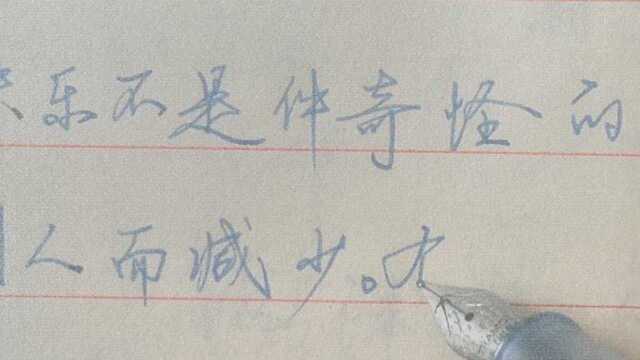 乐不是件奇怪的
人而减少。